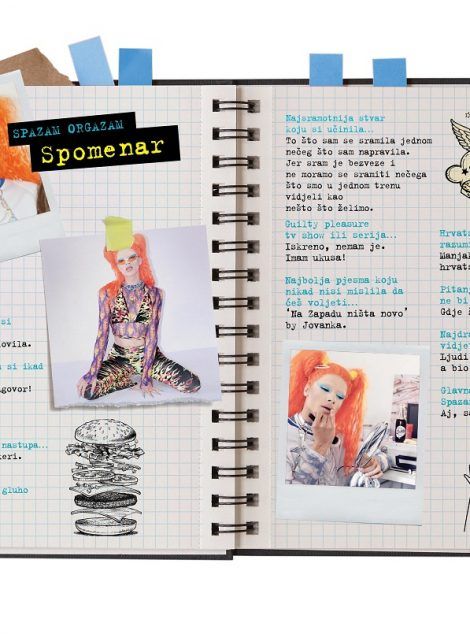 SPAZAM ORGAZAM
Spomenar
si
ovila.
u si ikad
govor!
nastupa...
keri.
gluho
Najsramotnija stvar
koju si učinila...
To što sam se sramila jednom
nečeg što sam napravila.
Jer sram je bezveze i
ne moramo se sramiti nečega
što smo u jednom trenu
vidjeli kao
nešto što želimo.
Guilty pleasure
tv show ili serija...
Iskreno, nemam je.
Imam ukusa!
Najbolja pjesma koju
nikad nisi mislila da
ćeš voljeti...
'Na Zapadu ništa novo'
by Jovanka.
Hrvats
razumi
Manjak
hrvat
Pitanj
ne bi
Gdje š
Najdra
vidjet
Ljudi
a bio
Glavno
Spazam
Aj, sa